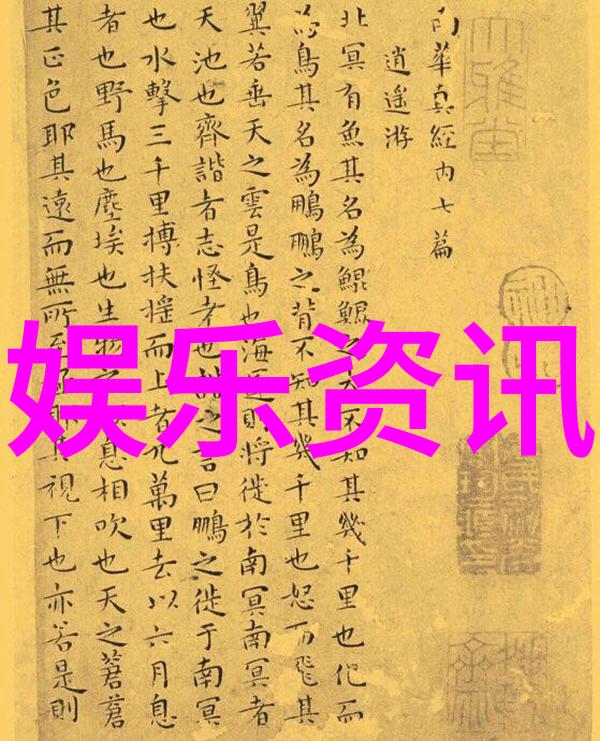 南華真經内七篇
逍遥游
北冥有魚其名為鯤鯤之大不知其幾千里也化而
為鳥其名為鵬鵬之背不知其幾千里也怒而飛其
翼若垂天之雲是鳥也海運則將徙於南冥南冥者
天池也齊諧者志怪者也諧之言曰鵬之徙于南冥
也水擊三千里搏扶搖而上者九萬里去以六月息
者也野馬也塵埃也生物之以息相吹也天之蒼蒼
其正色耶其遠而無所至極耶其視下也亦若是則
大雅堂
娱乐资讯